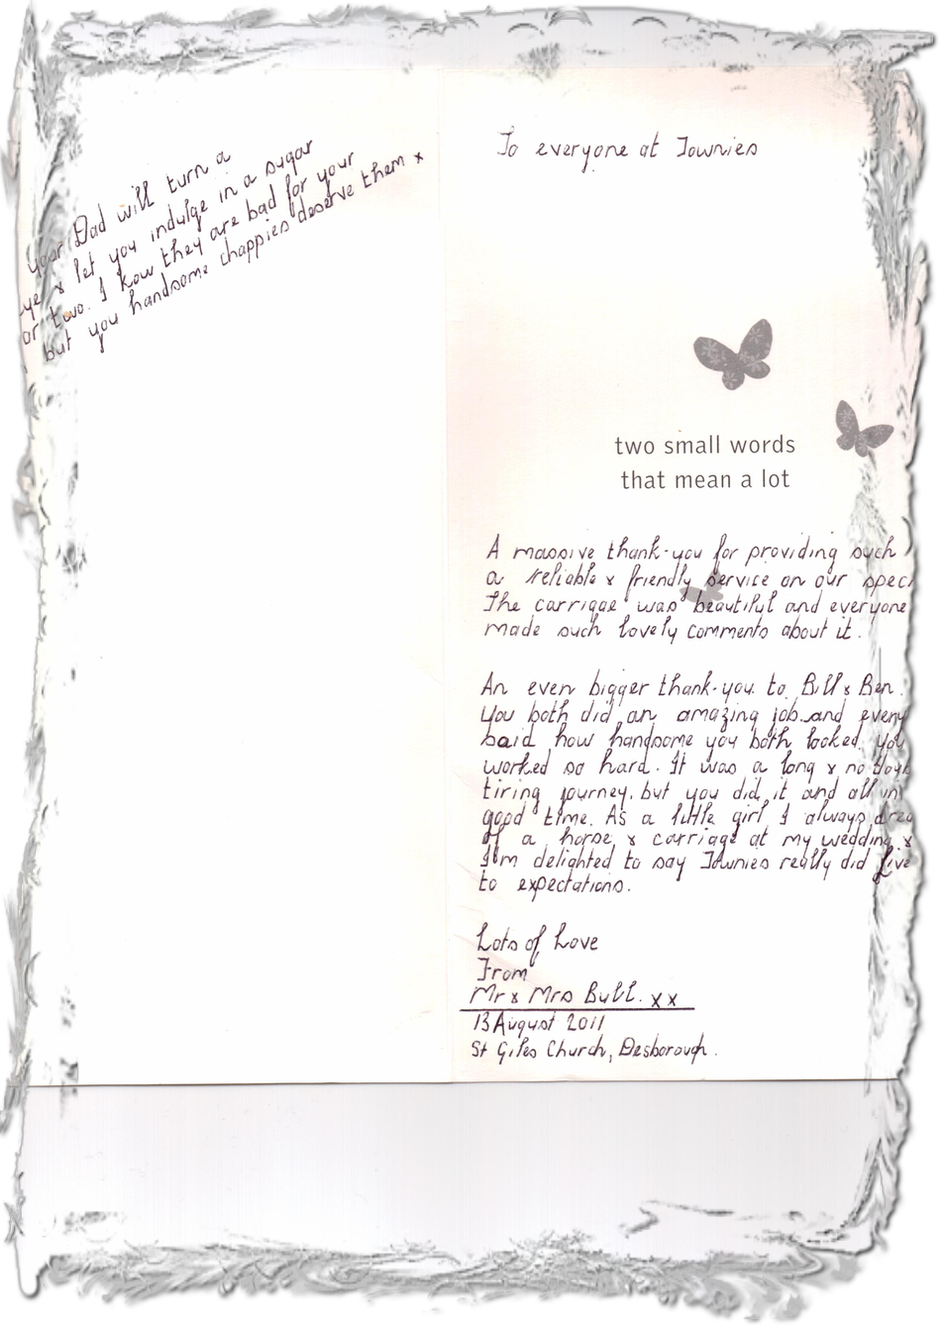 your Dad will turn a
ye & let you indulge in a sugar
or two. I kow they are bad for your
but you handsome chappies deserve them x
To everyone at Townies
two small words
that mean a lot
A massive thank-you for providing such
a reliable & friendly service on our speci
The carriage was beautiful and everyone
made such lovely comments about it.
An even bigger thank-you to Bill & Ben.
You both did an amazing job and every
said how handsome you both looked. you
worked so hard. It was a long & no doub
tiring journey, but you did it and all in
good time. As a little girl I always drea
of a horse & carriage at my wedding &
I'm delighted to say Townies really did live
to expectations.
Lots of Love
From
Mr & Mrs Bull. xx
13 August 2011
St Giles Church, Desborough.